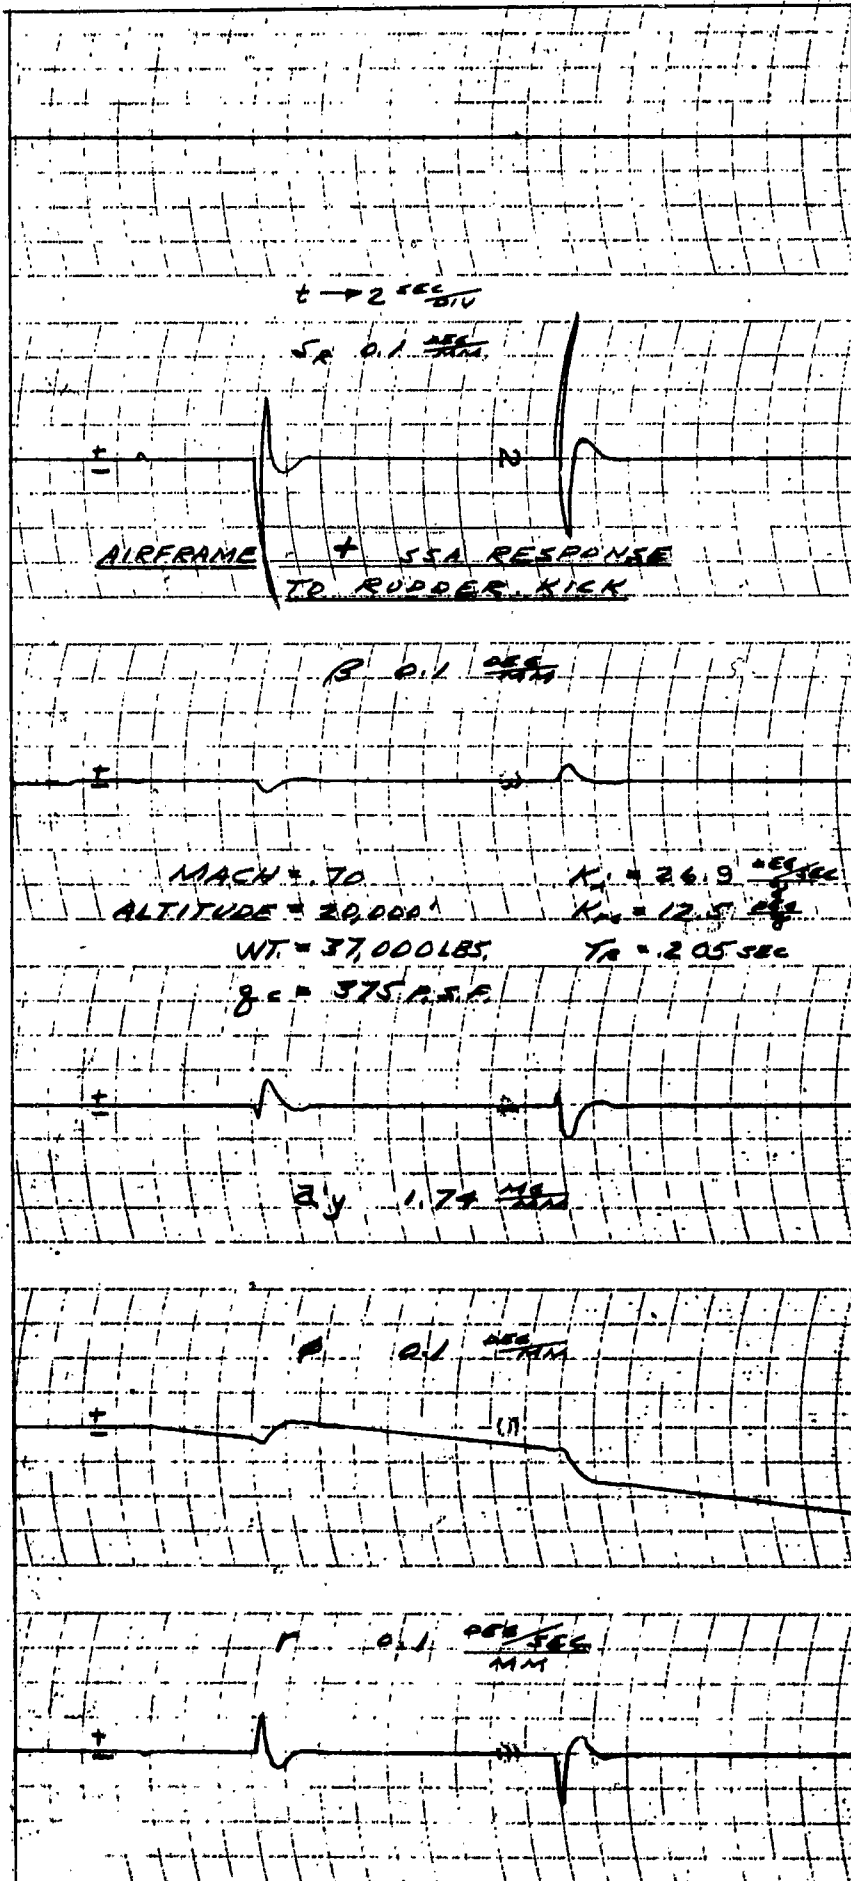 t → 2 SEC/DIV
δR 0.1 DEG/MM
+
−
2
AIRFRAME + SSA RESPONSE
TO RUDDER KICK
β 0.1 DEG/MM
+
−
3
MACH = .70
ALTITUDE = 20,000'
WT. = 37,000 LBS.
qc = 375 P.S.F.
= 26.9 DEG/SEC/g
= 12.5
= .205 SEC
+
−
a'y 1.74 MG/MM
+
−
5
0.1 DEG/MM
r 0.1 DEG/SEC/MM
+
−